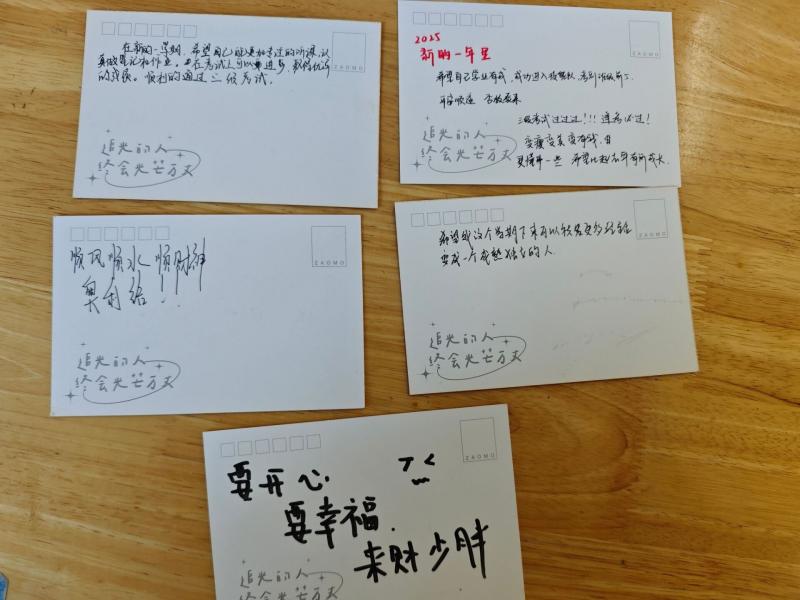 在新的一学期,希望自己能更加专注的听课,认
真做笔记和作业。在考试上可以进步,取得优异
的成绩。顺利的通过三级考试。
ZAOMO
追光的人
终会光芒万丈
2025
新的一年里
希望自己学业有成,成功进入
ZAOMO
三级考试过过过!!!逢考必过!
变瘦变美变有钱,
更懂事一些 希望比起去年有所成长
追光的人
终会光芒万丈
顺风顺水 顺财神
奥利给!!
ZAOMO
追光的人
终会光芒万丈
希望我这个学期下来可以
变成一个成熟独立的人
ZAOMO
追光的人
终会光芒万丈
要开心
要幸福
来财少胖
ZAOMO
追光的人
终会光芒万丈